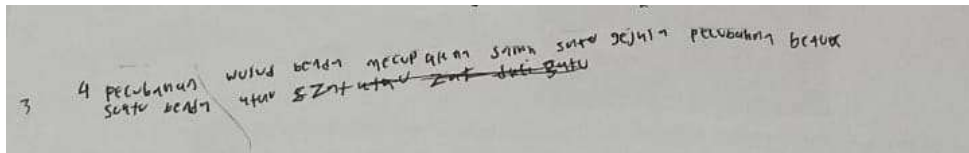 3 4 perubahan wujud benda merupakan salah satu gejala perubahan bentuk
suatu benda atau zat